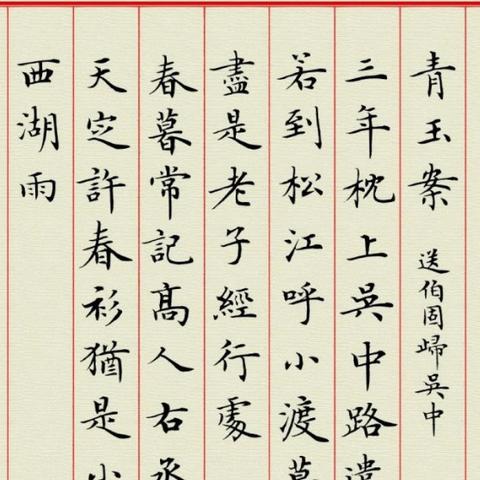 青玉案 送伯固歸吳中
三年枕上吳中路遣
若到松江呼小渡莫
盡是老子經行處
春暮常記髙人右丞
天定許春衫猶是小
西湖雨